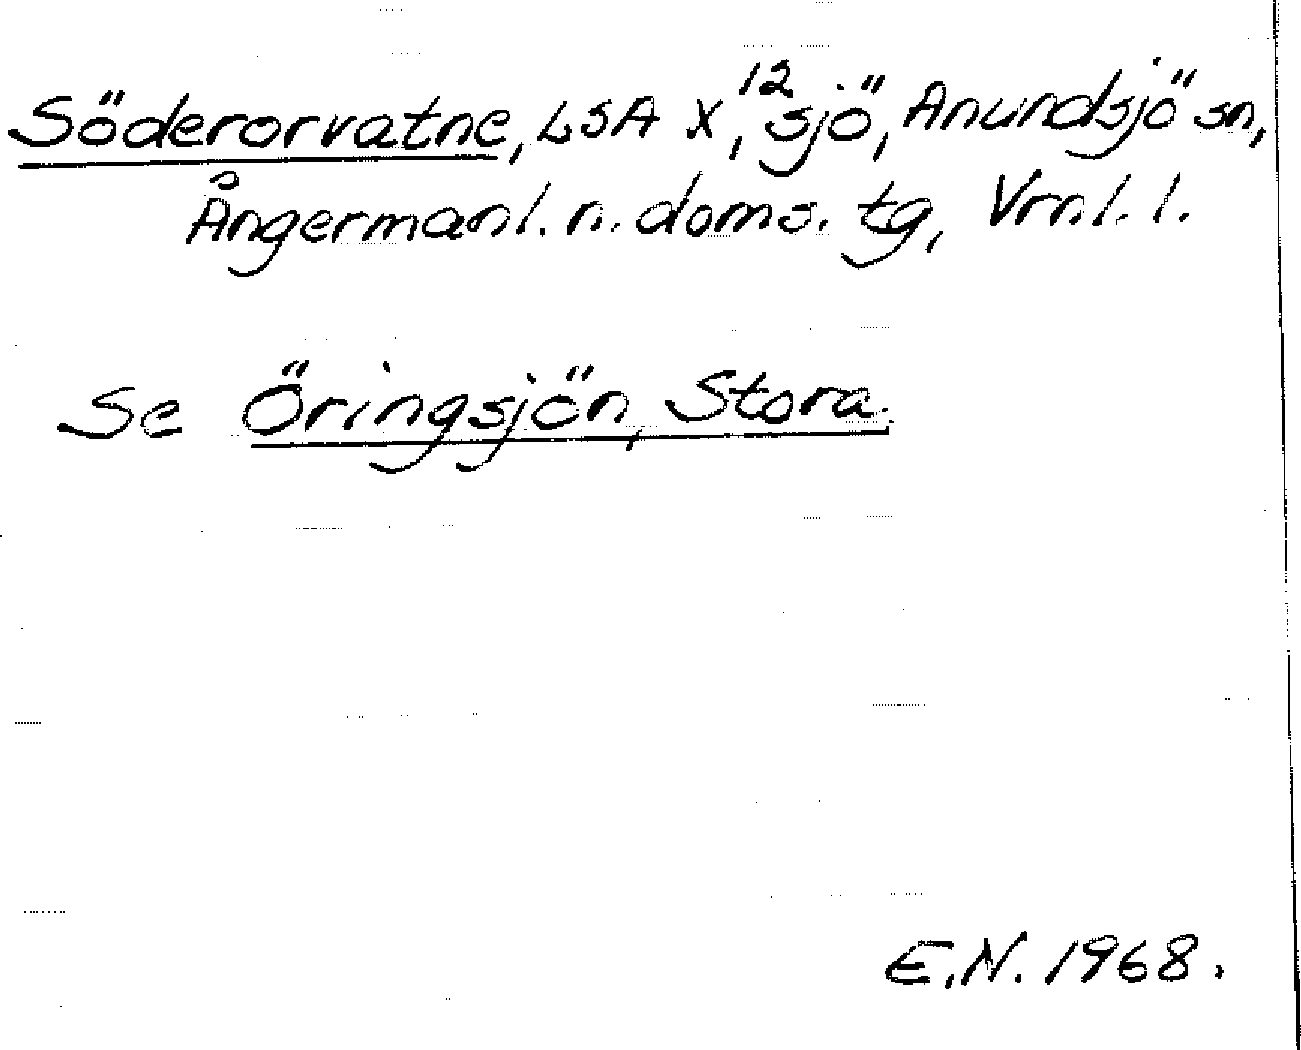 Söderorvatne, LSA X, 12 sjö, Anundsjö sn,
Ångermanl. n. doms. tg, Vrnl. l.
Se Öringsjön, Stora.
E.N. 1968.